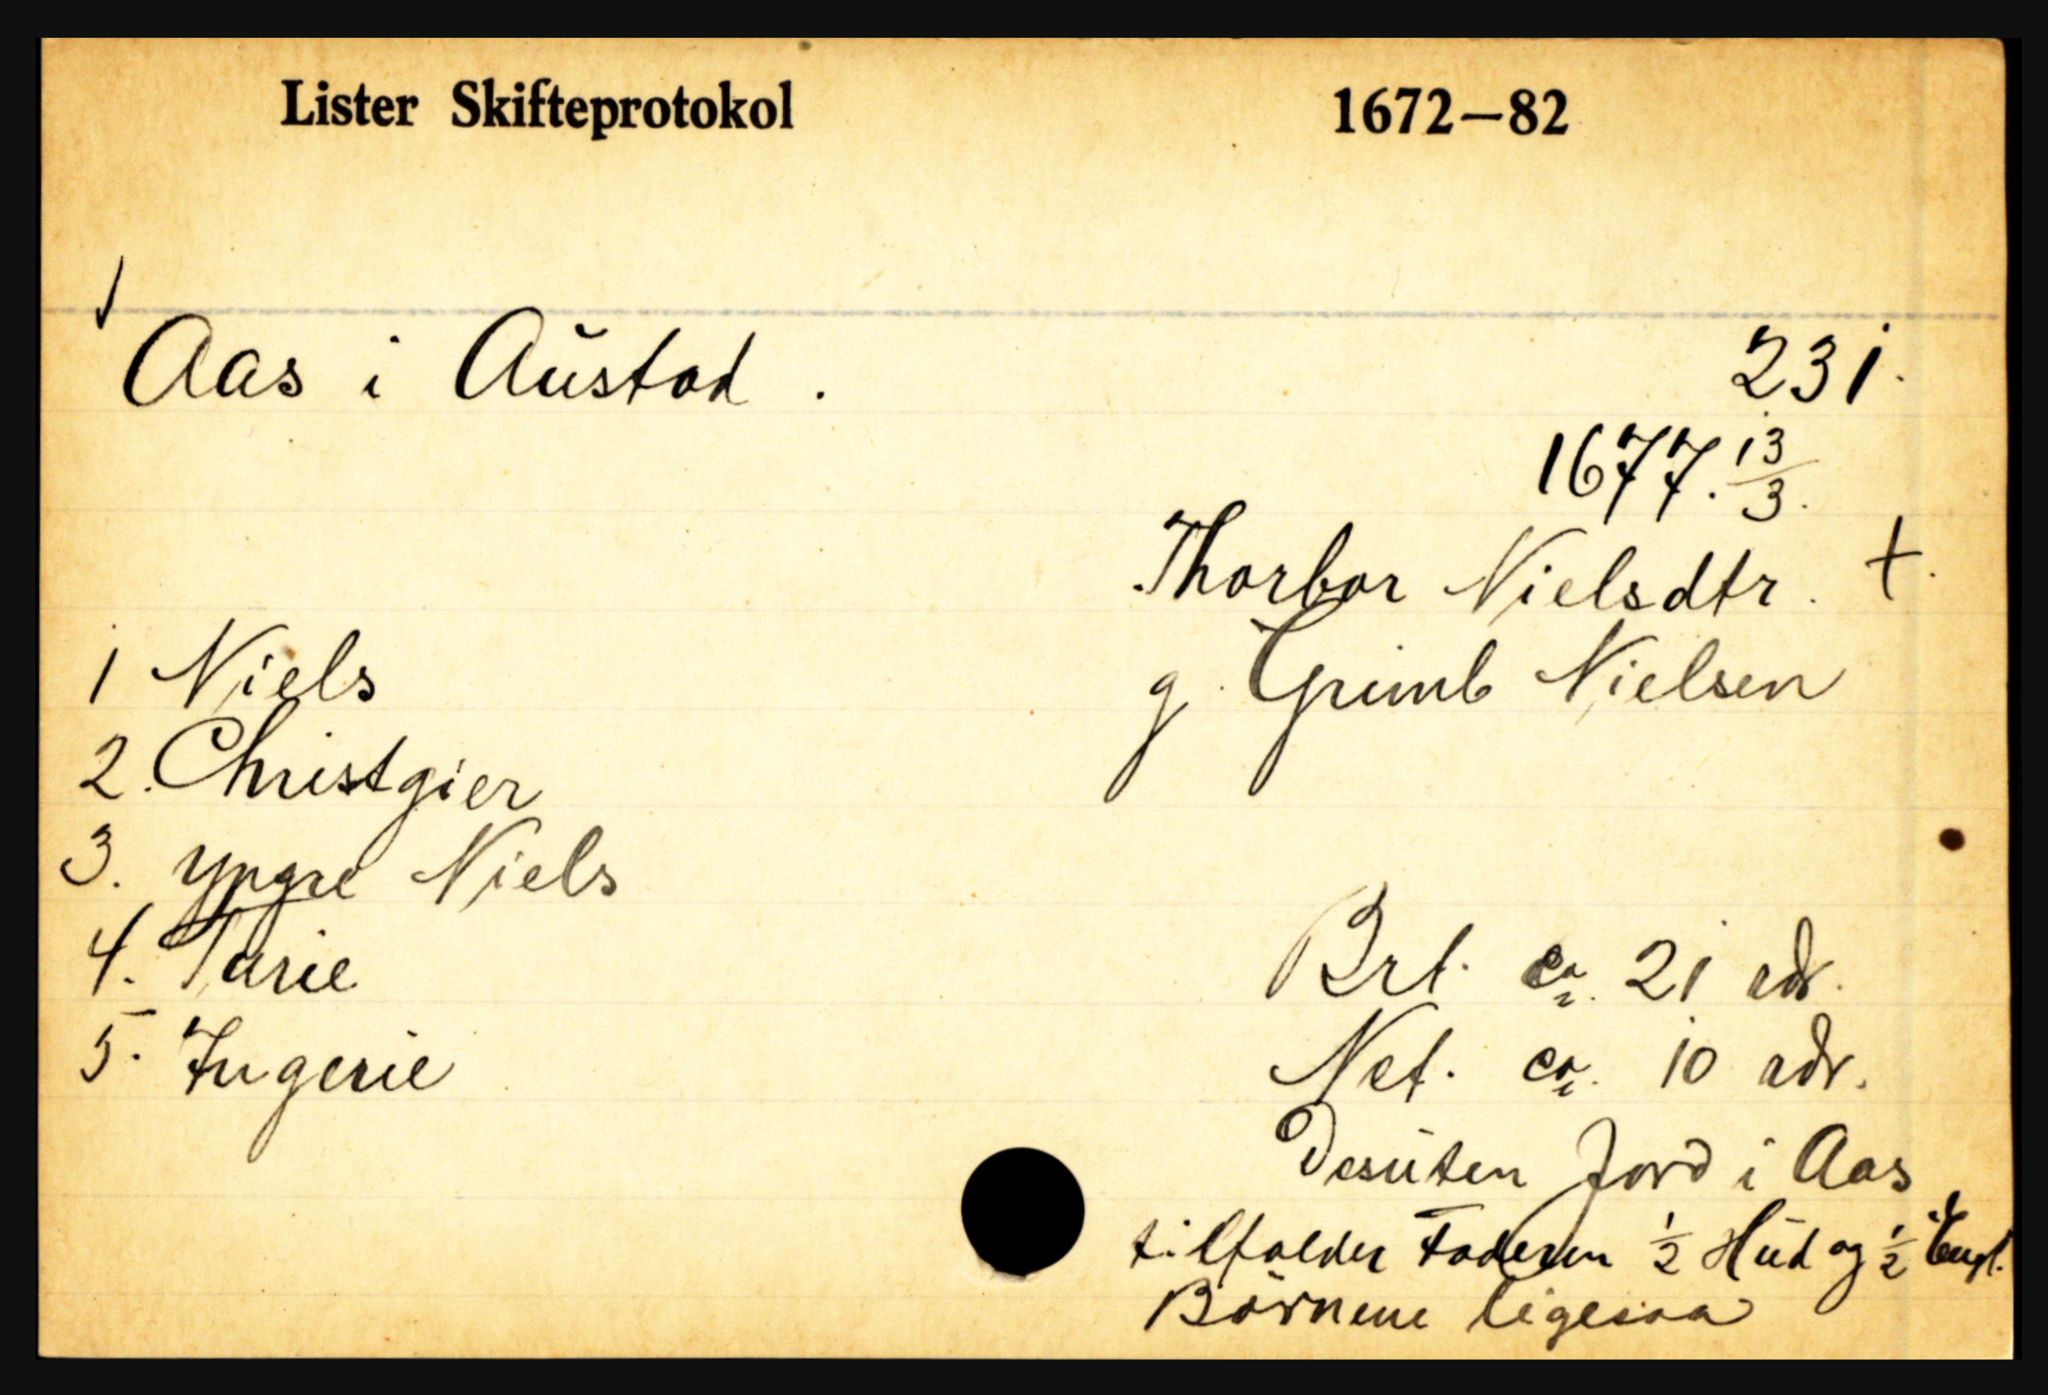 Lister Skifteprotokol 1672–82
Aas i Austad . 231.
1677. 13/3.
Thorbor Nielsdtr. †.
g. Grimb Nielsen
1 Niels
2. Christgier
3. yngre Niels
4. Tarie
5. Ingerie
Brt. ca. 21 rdr.
Net. ca. 10 rdr.
Desuten Jord i Aas
tilfalder Faderen 1/2 Hud og 1/2 Engl.
Börnene ligesaa